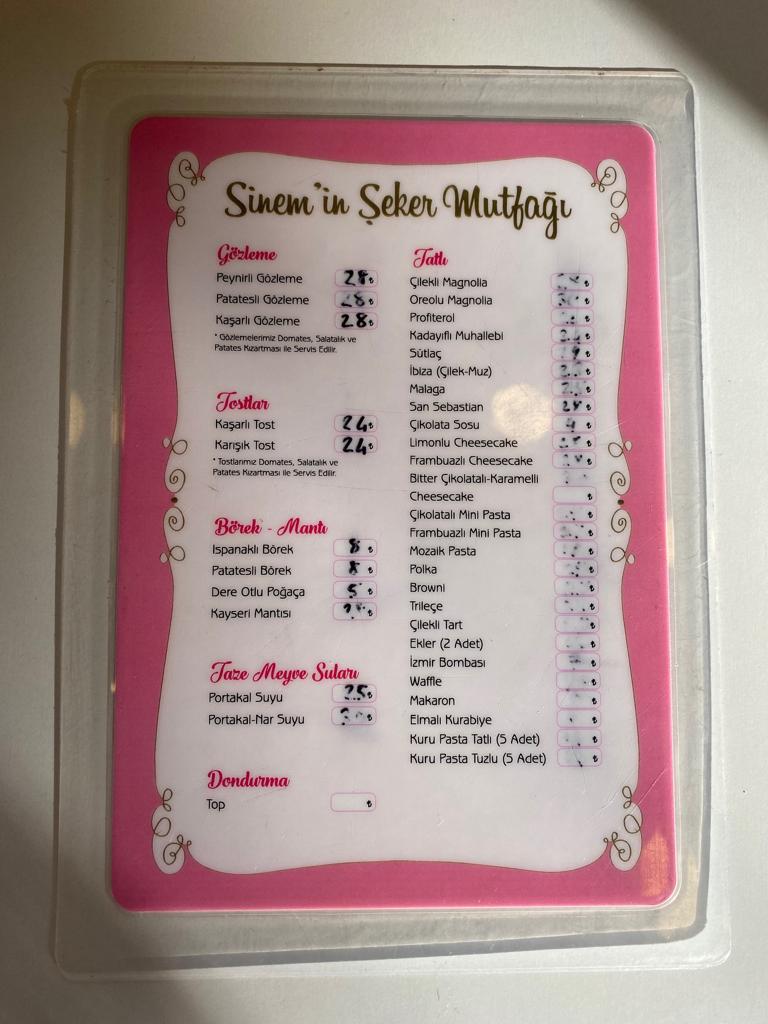 Sinem'in Şeker Mutfağı
Gözleme
Peynirli Gözleme 28 ₺
Patatesli Gözleme 28 ₺
Kaşarlı Gözleme 28 ₺
* Gözlemelerimiz Domates, Salatalık ve
Patates Kızartması ile Servis Edilir.
Tostlar
Kaşarlı Tost 24 ₺
Karışık Tost 24 ₺
* Tostlarımız Domates, Salatalık ve
Patates Kızartması ile Servis Edilir.
Börek - Mantı
Ispanaklı Börek 8 ₺
Patatesli Börek 8 ₺
Dere Otlu Poğaça 5 ₺
Kayseri Mantısı ₺
Taze Meyve Suları
Portakal Suyu 25 ₺
Portakal-Nar Suyu ₺
Dondurma
Top ₺
Tatlı
Çilekli Magnolia ₺
Oreolu Magnolia ₺
Profiterol ₺
Kadayıflı Muhallebi ₺
Sütlaç ₺
İbiza (Çilek-Muz) ₺
Malaga ₺
San Sebastian ₺
Çikolata Sosu 4 ₺
Limonlu Cheesecake ₺
Frambuazlı Cheesecake ₺
Bitter Çikolatalı-Karamelli
Cheesecake ₺
Çikolatalı Mini Pasta ₺
Frambuazlı Mini Pasta ₺
Mozaik Pasta ₺
Polka ₺
Browni ₺
Trileçe ₺
Çilekli Tart ₺
Ekler (2 Adet) ₺
İzmir Bombası ₺
Waffle ₺
Makaron ₺
Elmalı Kurabiye ₺
Kuru Pasta Tatlı (5 Adet) ₺
Kuru Pasta Tuzlu (5 Adet) ₺